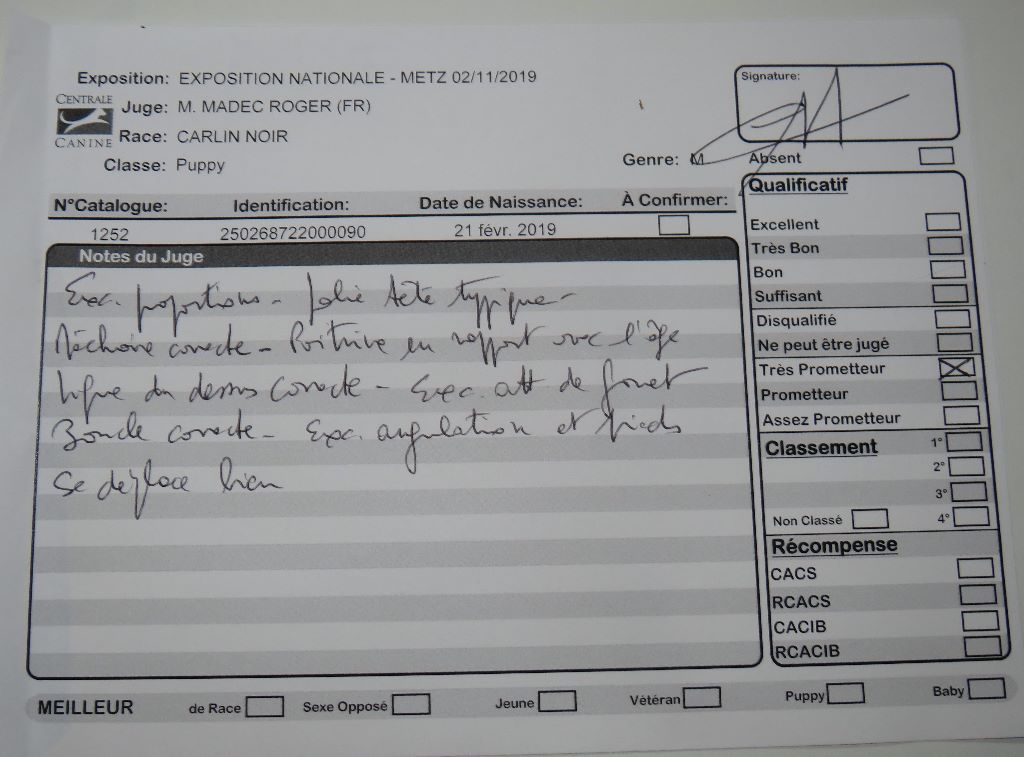 Exposition: EXPOSITION NATIONALE - METZ 02/11/2019
CENTRALE
CANINE
Juge: M. MADEC ROGER (FR)
Race: CARLIN NOIR
Classe: Puppy
Genre: M
Signature:
Absent
N°Catalogue: Identification: Date de Naissance: À Confirmer:
1252 250268722000090 21 févr. 2019
Notes du Juge
Exc. proportions - Jolie tête typique -
Mâchoire correcte - Poitrine en rapport avec l'âge
Ligne du dessus correcte - Exc. att de fouet
Boucle correcte - Exc. angulation et pieds
Se déplace bien
Qualificatif
Excellent
Très Bon
Bon
Suffisant
Disqualifié
Ne peut être jugé
Très Prometteur
Prometteur
Assez Prometteur
Classement 1°
2°
3°
Non Classé 4°
Récompense
CACS
RCACS
CACIB
RCACIB
MEILLEUR de Race Sexe Opposé Jeune Vétéran Puppy Baby